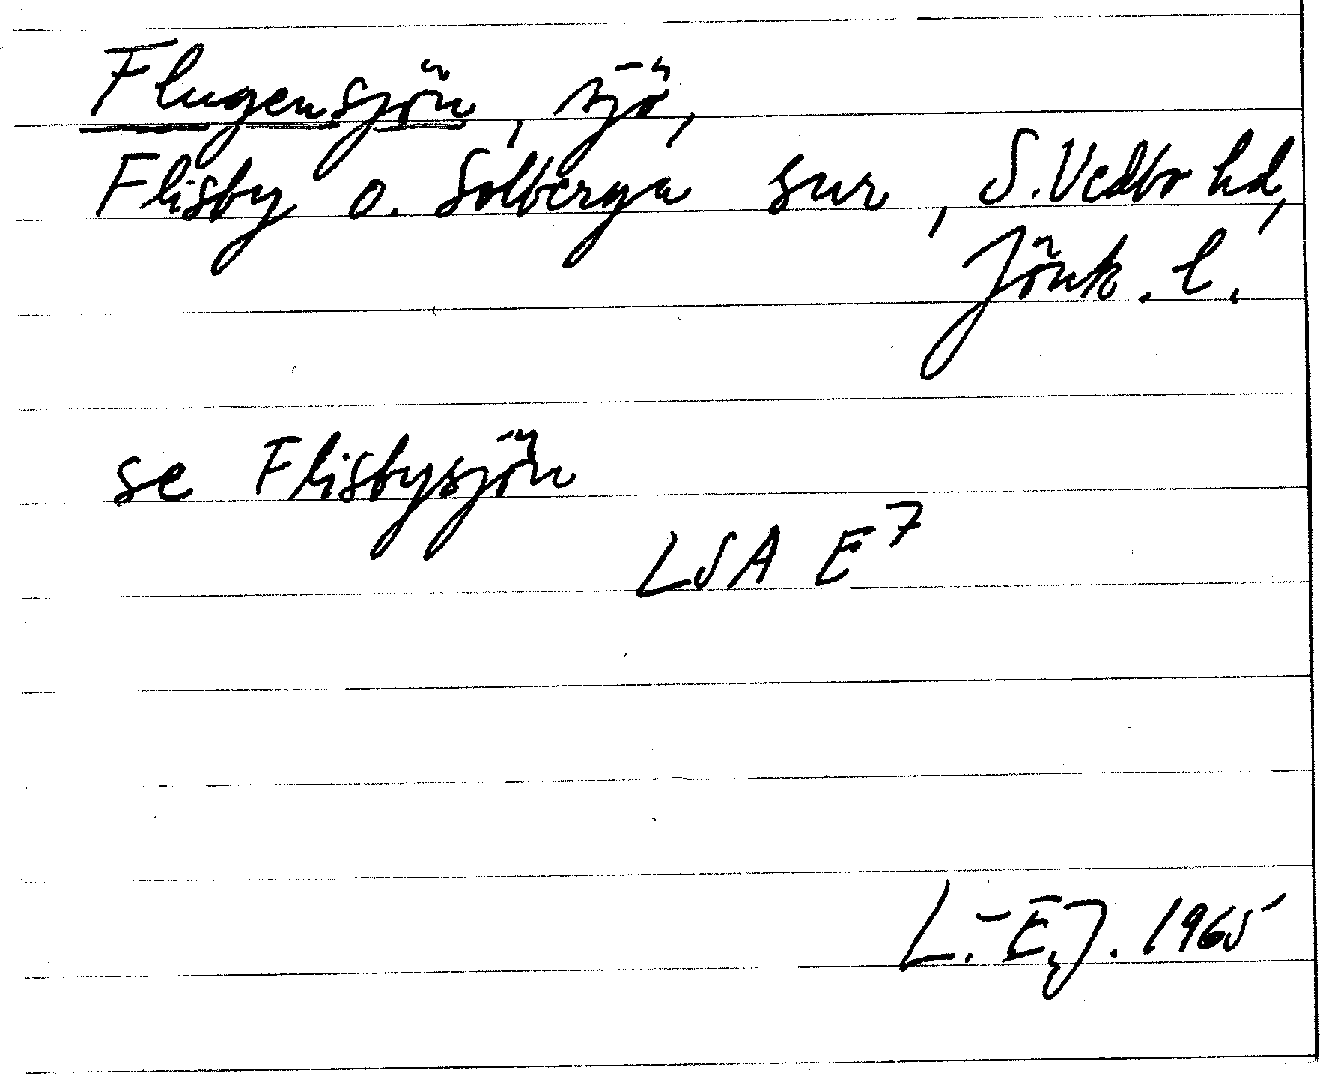 Flugensjön, sjö,
Flisby o. Solberga snr, S. Vedbo hd,
Jönk. l.
se Flisbysjön
LSA E7
L.-E.J. 1965